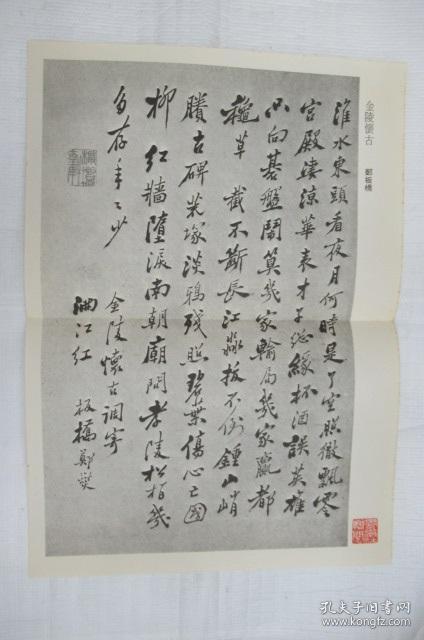 金陵懷古
鄭板橋
淮水東頭看夜月何時是了空照徹飄零
宮殿淒涼華表才子總緣杯酒誤英雄
只向碁盤鬧算幾家輸局幾家贏都
龝草 截不斷長江淼拔不倒鍾山峭
賸古碑荒塚淡鴉殘照碧葉傷心亡國
柳紅牆墮淚南朝廟問孝陵松柏幾
多存年々少
金陵懷古調寄
滿江紅 板橋鄭燮
孔夫子旧书网
www.kongfz.com